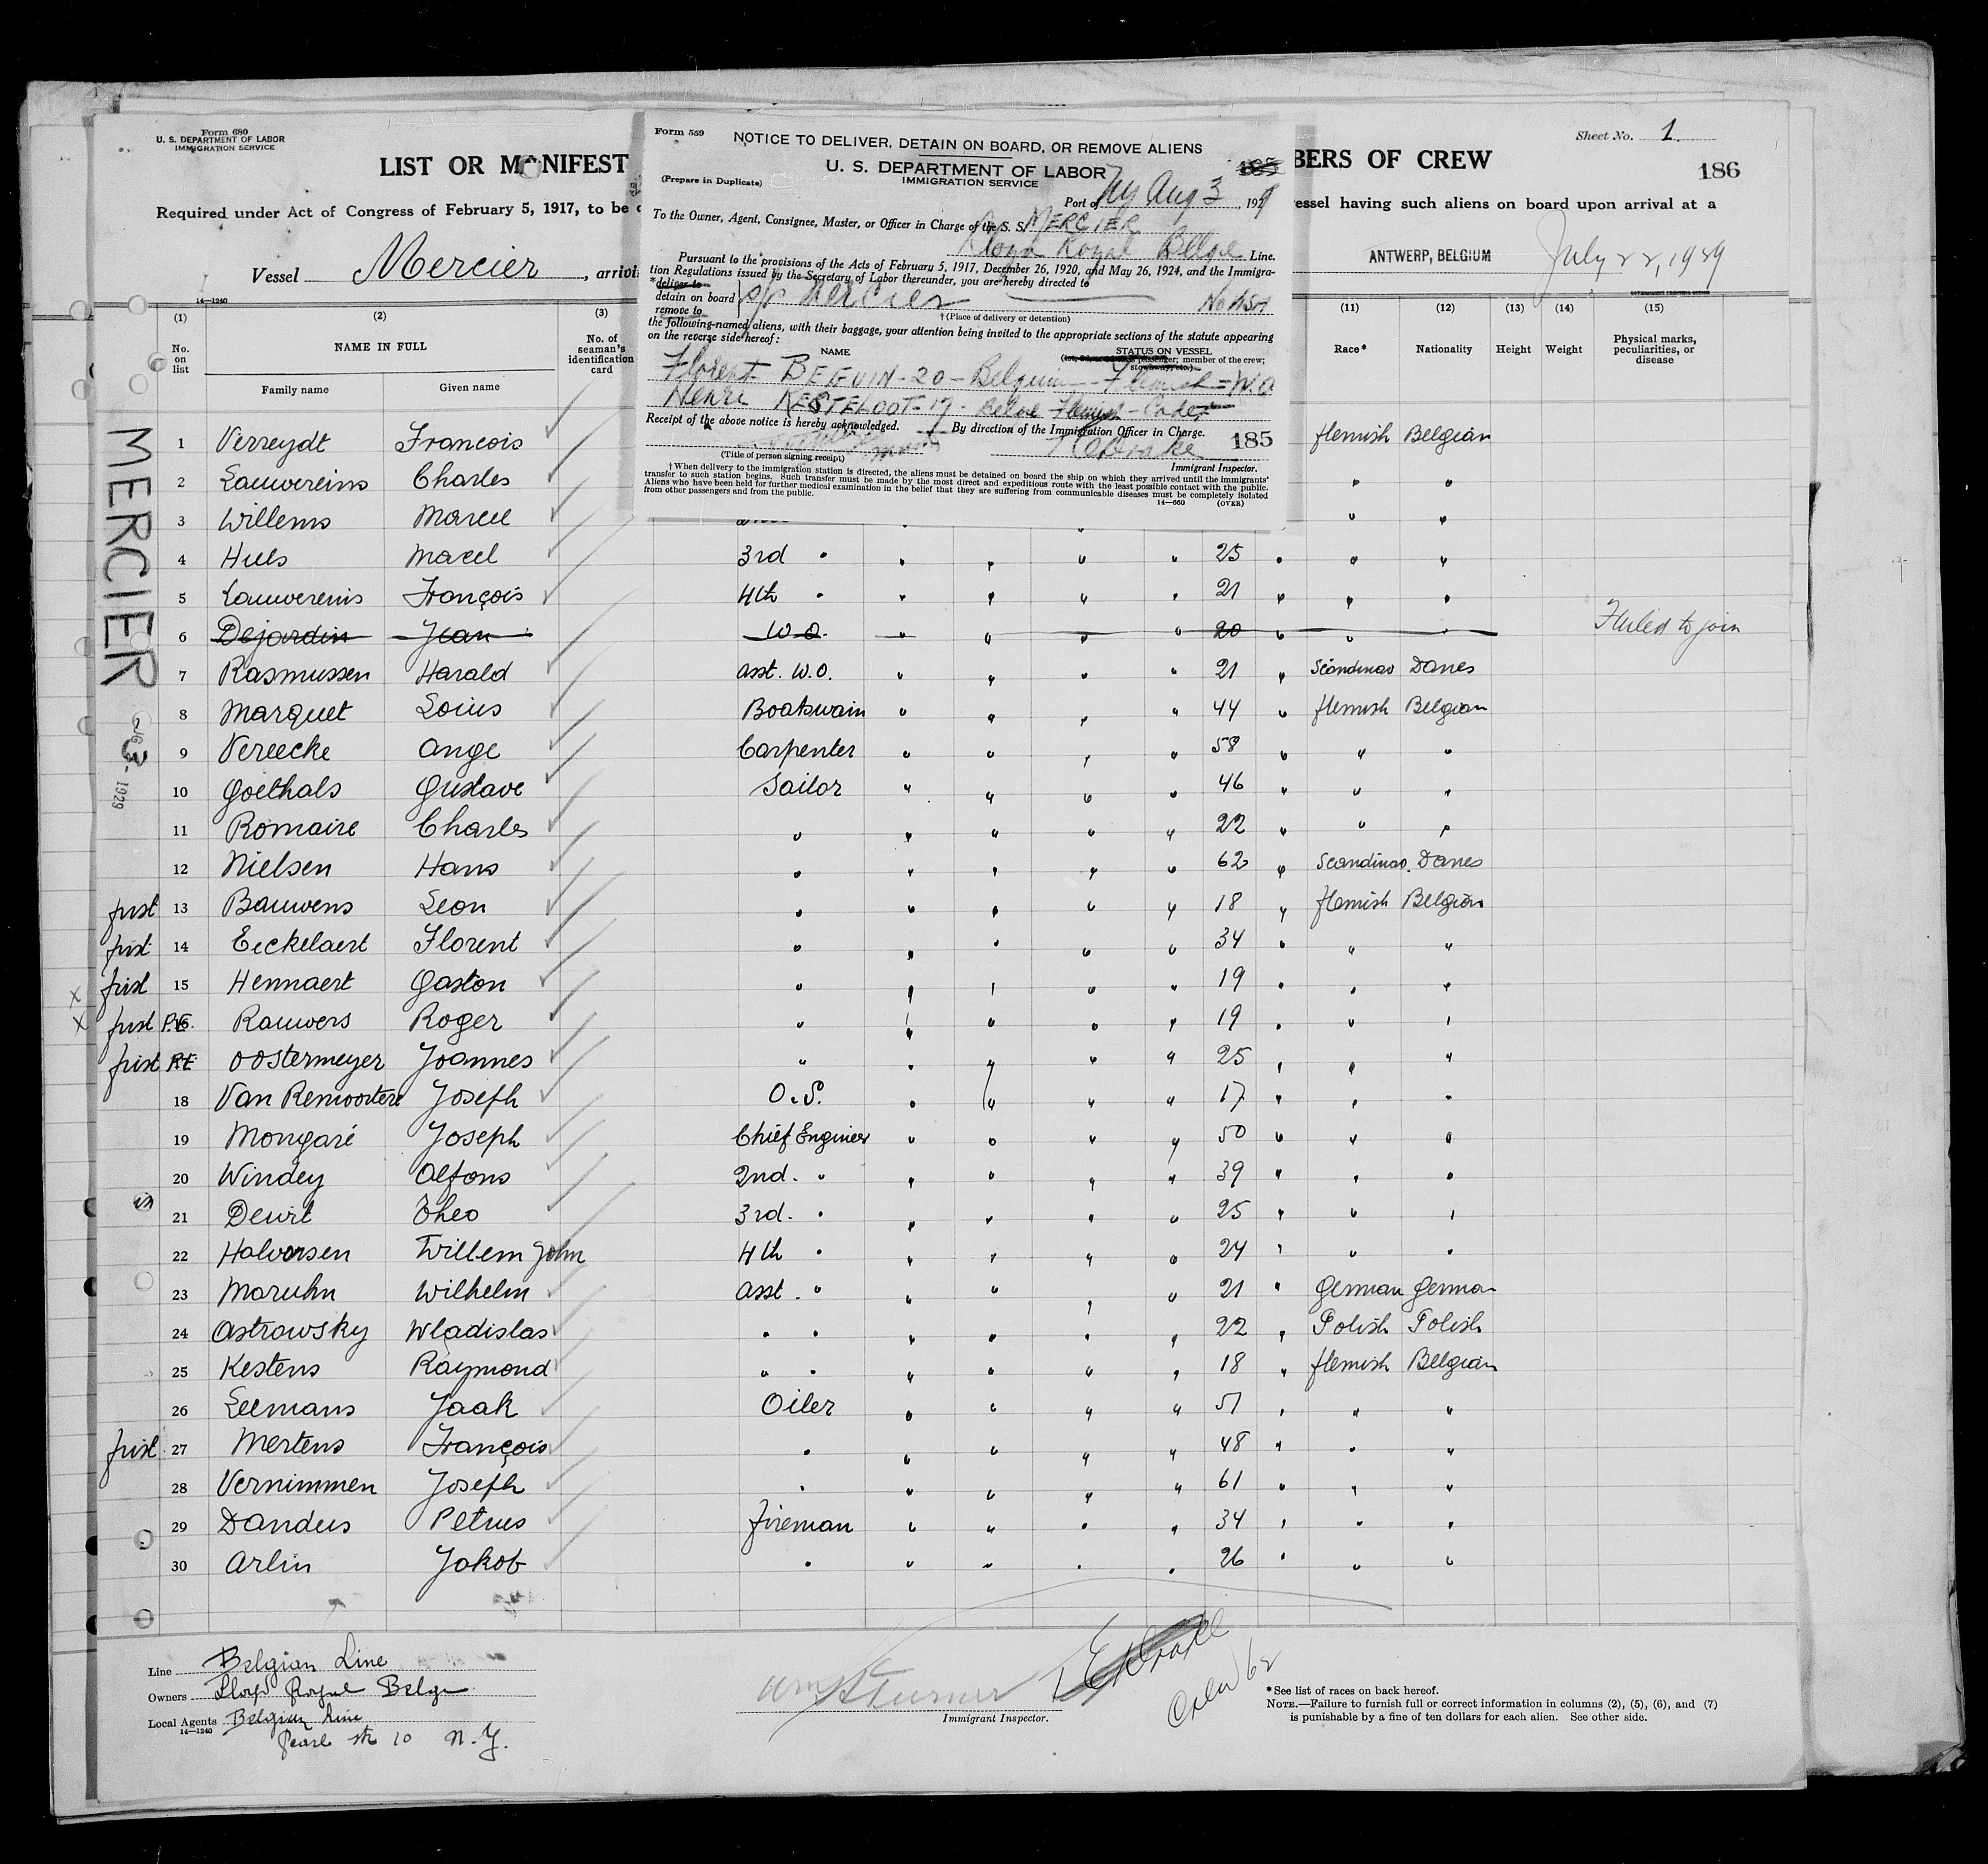 Form 680
U. S. DEPARTMENT OF LABOR
IMMIGRATION SERVICE
LIST OR MANIFEST
BERS OF CREW
Sheet No. 1.
186
Required under Act of Congress of February 5, 1917, to be
essel having such aliens on board upon arrival at a
Vessel Mercier, arrivi
ANTWERP, BELGIUM July 22, 1929
14—1240
Form 559
NOTICE TO DELIVER, DETAIN ON BOARD, OR REMOVE ALIENS
U. S. DEPARTMENT OF LABOR
IMMIGRATION SERVICE
185
(Prepare in Duplicate)
Port of NY Aug 3, 1929
To the Owner, Agent, Consignee, Master, or Officer in Charge of the S. S. MERCIER
Lloyd Royal Belge Line.
Pursuant to the provisions of the Acts of February 5, 1917, December 26, 1920, and May 26, 1924, and the Immigra-
tion Regulations issued by the Secretary of Labor thereunder, you are hereby directed to
*deliver to
detain on board
remove to
s/s Mercier
†(Place of delivery or detention)
the following-named aliens, with their baggage, your attention being invited to the appropriate sections of the statute appearing
on the reverse side hereof:
NAME
STATUS ON VESSEL
passenger; member of the crew;
stowaway, etc.)
Florent - 20 - Belgium - Flemish = W.O
Henri KESTELOOT - 17 - Belge Flemish - Cadet
Receipt of the above notice is hereby acknowledged. By direction of the Immigration Officer in Charge.
185
(Title of person signing receipt)
Drake
Immigrant Inspector.
†When delivery to the immigration station is directed, the aliens must be detained on board the ship on which they arrived until the immigrants'
transfer to such station begins. Such transfer must be made by the most direct and expeditious route with the least possible contact with the public.
Aliens who have been held for further medical examination in the belief that they are suffering from communicable diseases must be completely isolated
from other passengers and from the public.
14—660 (OVER)
(1) (2) (3) (11) (12) (13) (14) (15)
No. on list
NAME IN FULL
Family name Given name
No. of seaman's identification card
Race* Nationality Height Weight
Physical marks, peculiarities, or disease
MERCIER
3 - 1929
1 Verreydt Francois flemish Belgian
2 Lauwereins Charles " "
3 Willems Marcel " "
4 Huls Marcel 3rd " " " " " 25 " " "
5 Lauwereins François 4th " " " " " 21 " " "
6 Dejardin Jean W.O. " " " " 20 " " " Failed to join
7 Rasmussen Harald asst. W.O. " " " " 21 " Scandinav Danes
8 Marquet Loius Boatswain " " " " 44 " flemish Belgian
9 Vereecke Ange Carpenter " " " " 58 " " "
10 Goethals Gustave Sailor " " " " 46 " " "
11 Romaire Charles " " " " " 22 " " "
12 Nielsen Hans " " " " " 62 " Scandinav. Danes
first 13 Bauwens Leon " " " " " 18 " flemish Belgian
first 14 Eeckelaert Florent " " " " " 34 " " "
x first 15 Hennaert Gaston " " " " " 19 " " "
x first Rauwers Roger " " " " " 19 " " "
first Oostermeyer Joannes " " " " " 25 " " "
18 Van Remoortere Joseph O.S. " " " " 17 " " "
19 Mongaré Joseph Chief Engineer " " " " 50 " " "
20 Windey Alfons 2nd. " " " " " 39 " " "
21 Dewit Theo 3rd. " " " " " 25 " " "
22 Halvorsen Willem John 4th " " " " " 24 " " "
23 Maruhn Wilhelm asst. " " " " " 21 " German German
24 Astrowsky Wladislas " " " " " " 22 " Polish Polish
25 Kestens Raymond " " " " " " 18 " flemish Belgian
26 Leemans Jaak Oiler " " " " 51 " " "
first 27 Mertens François " " " " " 48 " " "
28 Vernimmen Joseph " " " " " 61 " " "
29 Dandus Petrus fireman " " " " 34 " " "
30 Arlin Jakob " " " " " 26 " " "
Line Belgian Line
Owners Lloyd Royal Belge
Local Agents Belgian Line
14—1240
Pearl str 10 N.Y.
Wm Turner
Immigrant Inspector.
*See list of races on back hereof.
NOTE.—Failure to furnish full or correct information in columns (2), (5), (6), and (7)
is punishable by a fine of ten dollars for each alien. See other side.